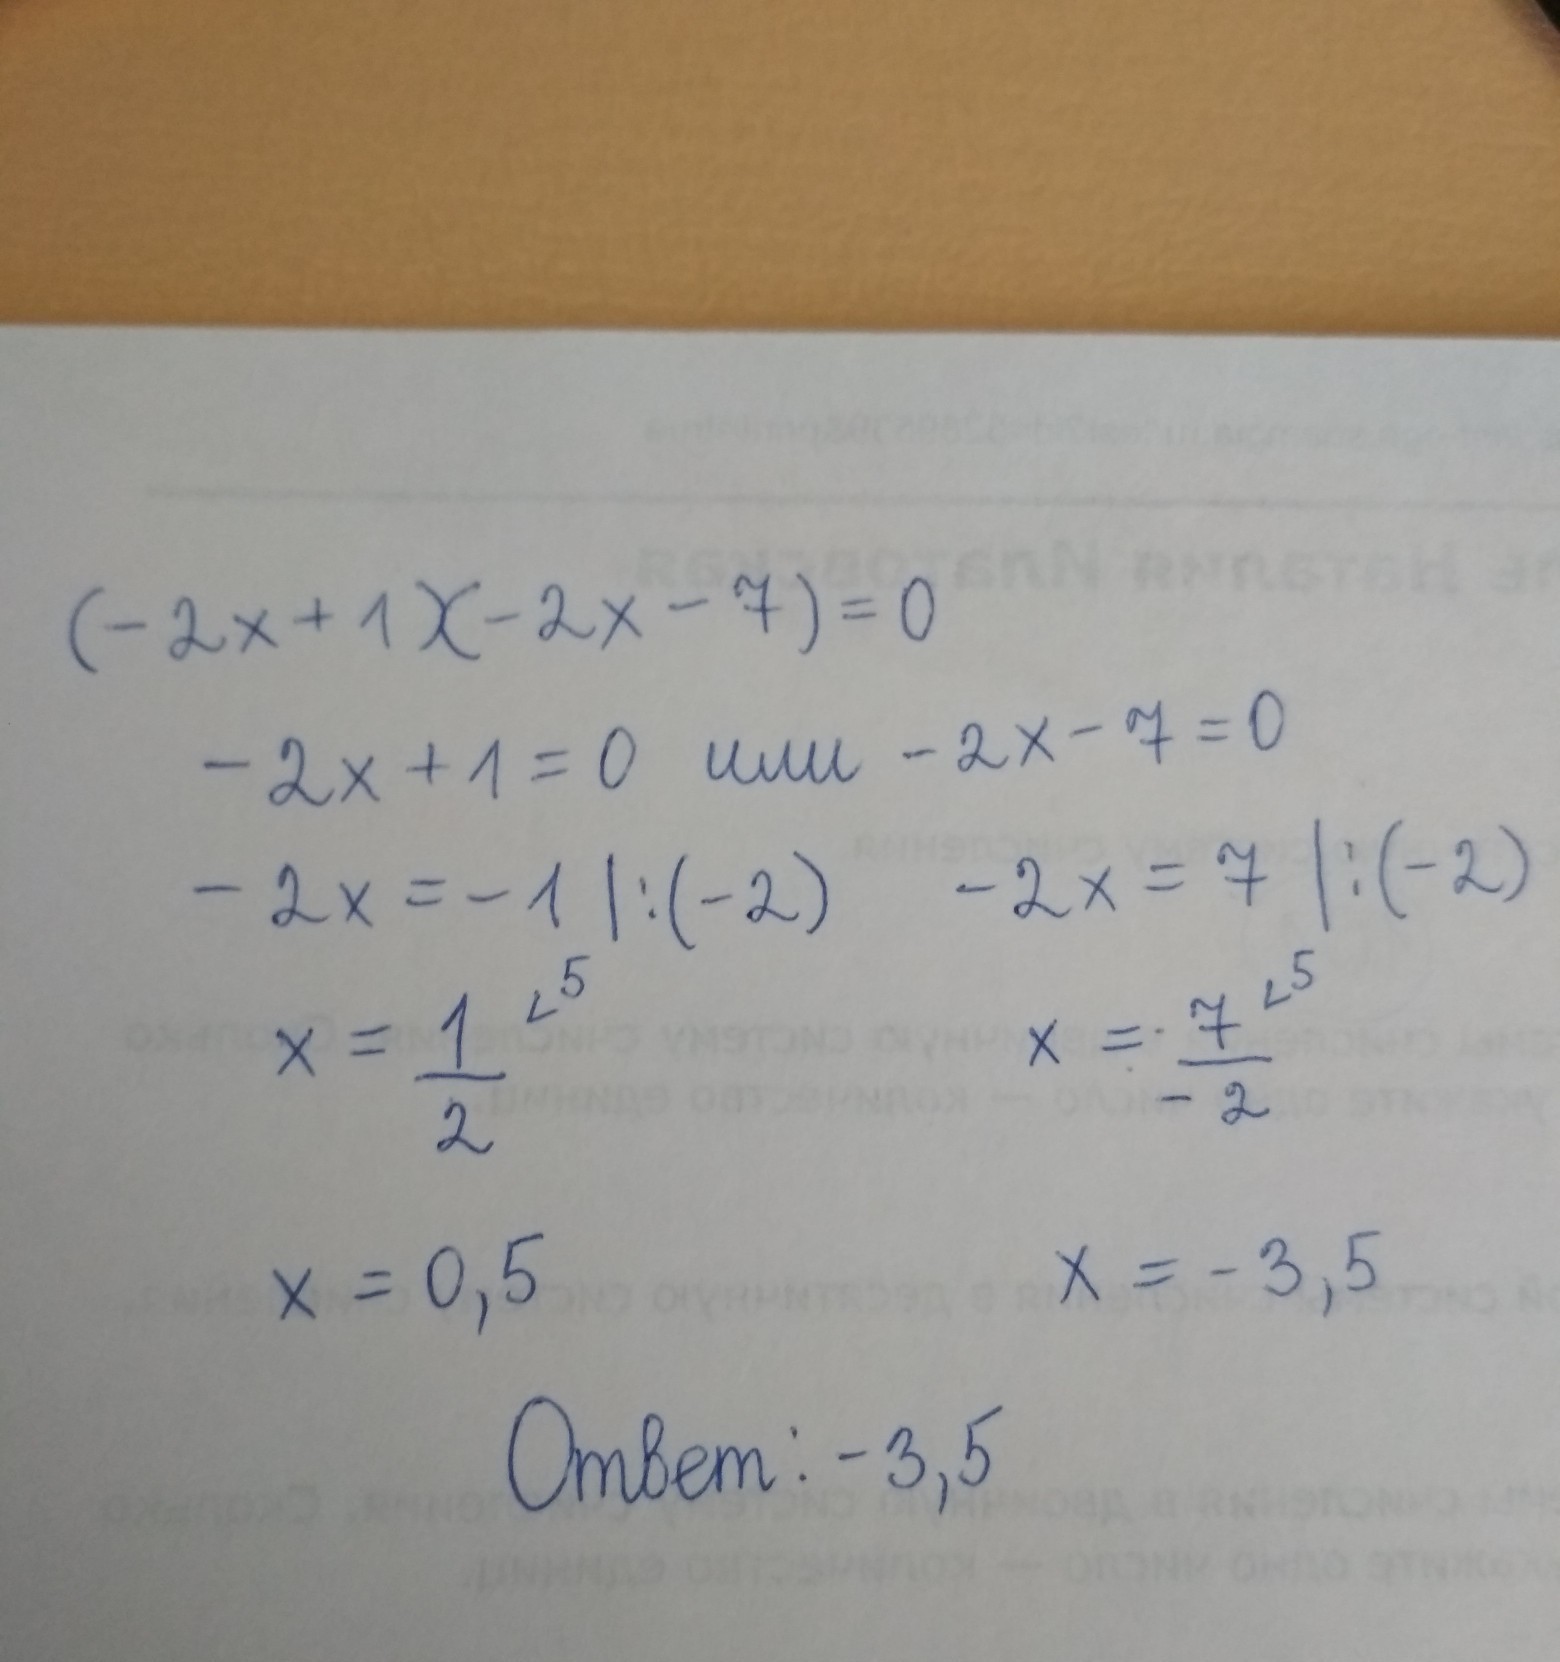 (-2x+1)(-2x-7)=0
-2x+1=0 или -2x-7=0
-2x=-1 |:(-2) -2x=7 |:(-2)
x = 1/2 ˪5 x = 7/-2 ˪5
x = 0,5 x = -3,5
Ответ: -3,5